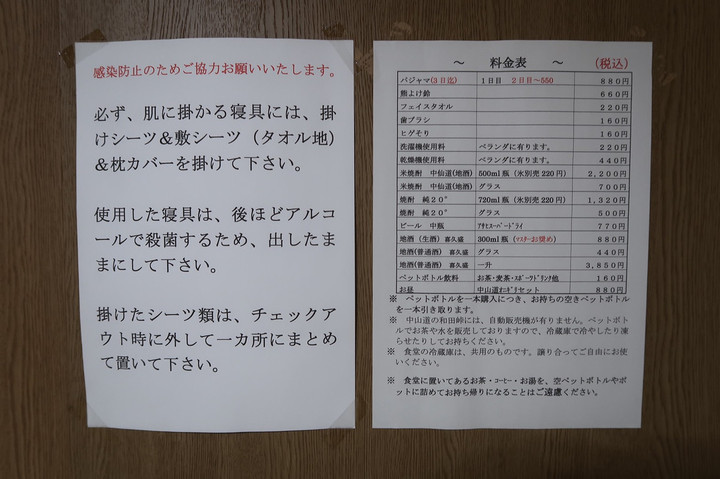 感染防止のためご協力お願いいたします。
必ず、肌に掛かる寝具には、掛
けシーツ&敷シーツ（タオル地）
&枕カバーを掛けて下さい。
使用した寝具は、後ほどアルコ
ールで殺菌するため、出したま
まにして下さい。
掛けたシーツ類は、チェックア
ウト時に外して一カ所にまとめ
て置いて下さい。
～ 料金表 ～ （税込）
パジャマ(3日迄) 1日目 2日目～550 880円
熊よけ鈴 660円
フェイスタオル 220円
歯ブラシ 160円
ヒゲそり 160円
洗濯機使用料 ベランダに有ります。 220円
乾燥機使用料 ベランダに有ります。 440円
米焼酎 中仙道(地酒) 500ml瓶（氷別売220円） 2,200円
米焼酎 中仙道(地酒) グラス 700円
焼酎 純20° 720ml瓶（氷別売220円） 1,320円
焼酎 純20° グラス 500円
ビール 中瓶 ｱｻﾋｽｰﾊﾟｰﾄﾞﾗｲ 770円
地酒（生酒）喜久盛 300ml瓶（ﾏｽﾀｰお奨め） 880円
地酒(普通酒) 喜久盛 グラス 440円
地酒(普通酒) 喜久盛 一升 3,850円
ペットボトル飲料 お茶･麦茶･ｽﾎﾟｰﾂﾄﾞﾘﾝｸ他 160円
お昼 中山道ｵﾆｷﾞﾘセット 880円
※ ペットボトルを一本購入につき、お持ちの空きペットボトル
を一本引き取ります。
※ 中山道の和田峠には、自動販売機が有りません。ペットボト
ルでお茶や水を販売しておりますので、冷蔵庫で冷やしたり凍
らせたりしてお持ちください。
※ 食堂の冷蔵庫は、共用のものです。譲り合ってご自由にお使
いください。
※ 食堂に置いてあるお茶・ｺｰﾋｰ・お湯を、空ペットボトルやポ
ットに詰めてお持ち帰りになることはご遠慮ください。